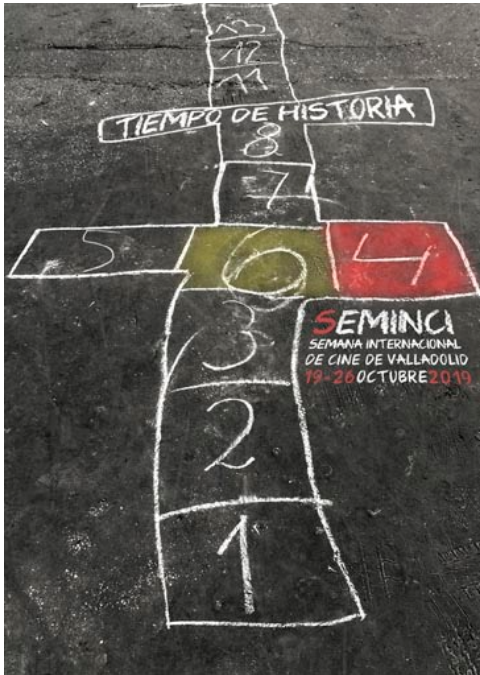 13
12
11
TIEMPO DE HISTORIA
8
7
5 6 4
SEMINCI
SEMANA INTERNACIONAL
DE CINE DE VALLADOLID
19-26 OCTUBRE 2019
3
2
1